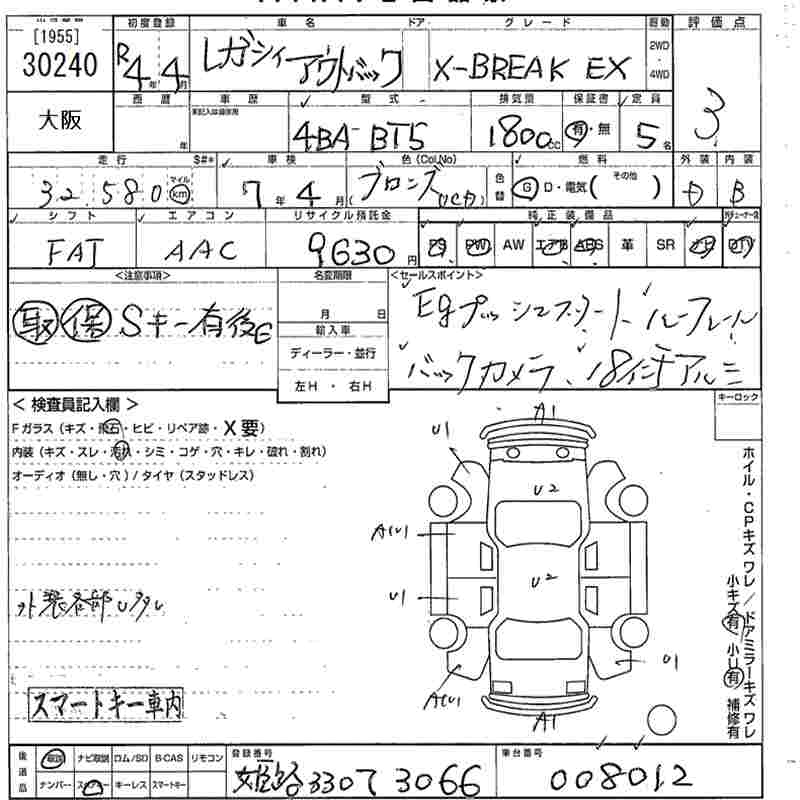 [1955]
30240
初度登録 車名 ドア グレード 駆動 評価点
R4年4月 レガシィアウトバック X-BREAK EX 2WD・4WD 3
大阪
西暦 車歴 型式 排気量 保証書 定員
年 4BA-BT5 1800CC 有・無 5名
走行 S#* 車検 色(Col,No) 燃料 外装 内装
32,580 マイル km 7年4月 ブロンズ 色替 G D・電気( その他 ) B
シフト エアコン リサイクル預託金 純正装備品
FAT AAC 9630円 PS PW AW エアB ABS 革 SR ナビ DTV
<注意事項> 名変期限 <セールスポイント>
取 保 Sキー有後 月 日 Egプッシュスタート、ルーフレール
輸入車
ディーラー・並行
左H・右H
バックカメラ、18インチアルミ
キーロック
< 検査員記入欄 >
Fガラス(キズ・飛石・ヒビ・リペア跡・X要)
内装(キズ・スレ・汚れ・シミ・コゲ・穴・キレ・破れ・割れ)
オーディオ(無し・穴)/タイヤ(スタッドレス)
A1
U1
U2
A(U)
U2
U1
U1
A(U)
A1
外装各部Uタレ
スマートキー車内
ホイル・CPキズワレ/ドアミラーキズワレ
小キズ有 小U有 補修有
後送品 取説 ナビ取説 ロム/SD B-CAS リモコン 登録番号 車台番号
ナンバー スペアキー キーレス スマートキー 姫路330 3066 008012